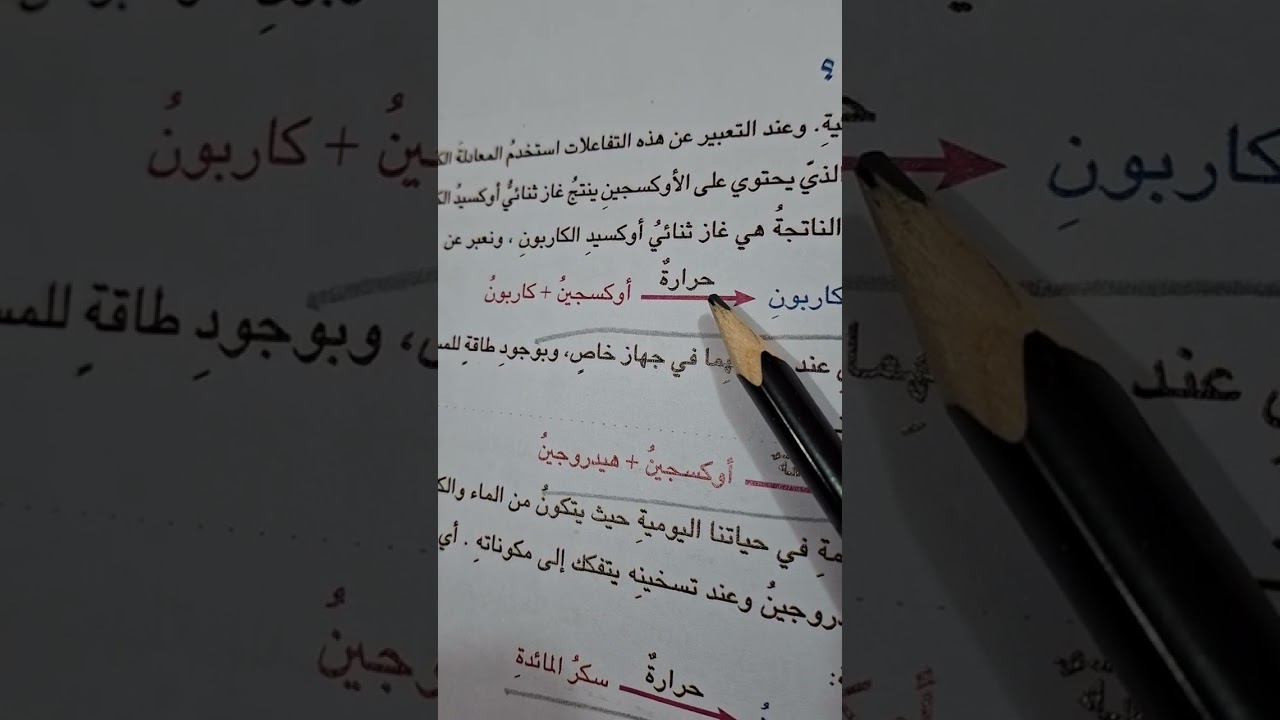 ؟
ية. وعند التعبير عن هذه التفاعلات استخدمُ المعادلةَ
الذيّ يحتوي على الأوكسجينِ ينتجُ غاز ثنائيُّ أوكسيدُ
الناتجةُ هي غاز ثنائيُ أوكسيدِ الكاربونِ ، ونعبر عن
أوكسجينُ + كاربونُ حرارةٌ كاربونِ
عند هما في جهاز خاصٍ، وبوجودِ طاقةِ
أوكسجينُ + هيدروجينُ
مةِ في حياتنا اليوميةِ حيث يتكونُ من الماء
روجينُ وعند تسخينِه يتفكك إلى مكوناتهِ . أي
سكرُ المائدةِ حرارةٌ